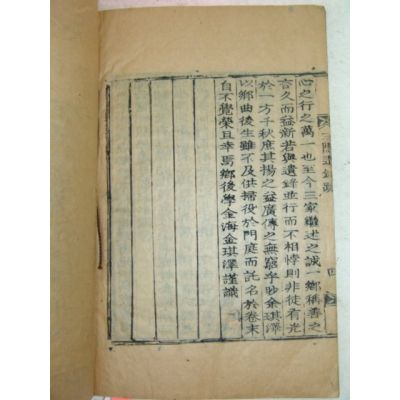 遺錄跋
四
心之行之萬一也至今三家繼述之誠一鄉稱善之
言久而益新若與遺錄並行而不相悖則非徒有光
於一方千秋庶其揚之益廣傳之無窮乎眇余琪澤
以鄉曲後生雖不及供掃役於門庭而託名於卷末
自不覺榮且幸焉鄉後學金海金琪澤謹識